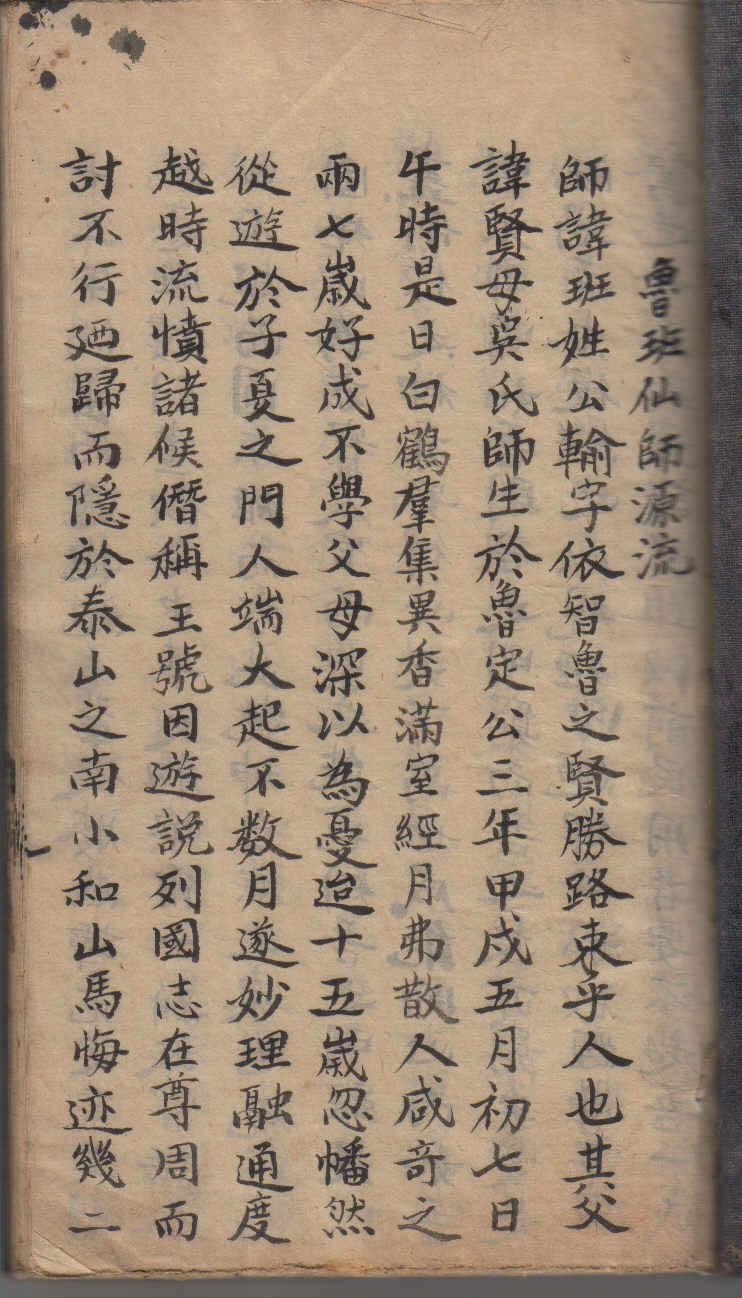 魯班仙師源流
師諱班姓公輸字依智魯之賢勝路東乎人也其父
諱賢母吳氏師生於魯定公三年甲戍五月初七日
午時是日白鶴羣集異香滿室經月弗散人咸奇之
兩七歲好成不學父母深以為憂迨十五歲忽幡然
從遊於子夏之門人端大起不数月遂妙理融通度
越時流憤諸候僭稱王號因遊說列國志在尊周而
討不行廼歸而隱於泰山之南小和山馬悔迹幾二